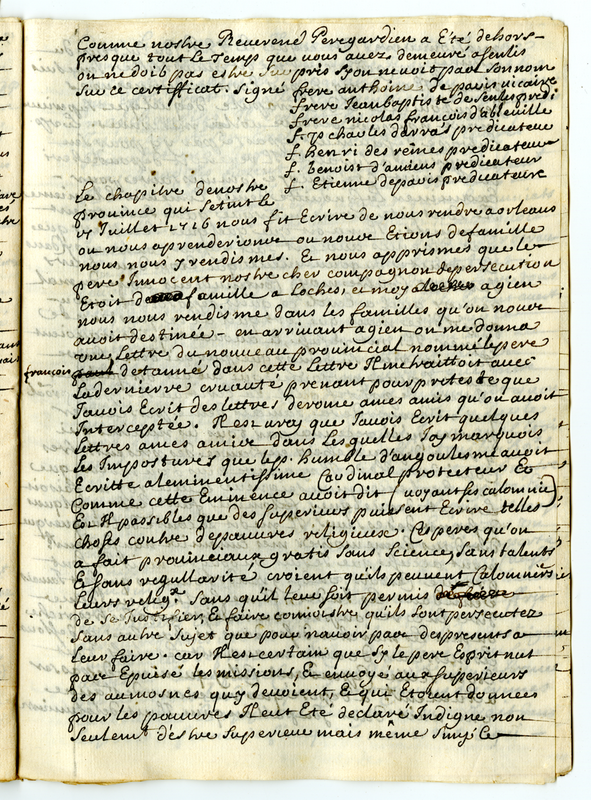 Comme nostre Reverend Peregardien a Eté dehors
presque tout le Temps que vous avez demeuré asenlis
on nedoib pas estre Surpris Syon nevoit pas Sonnom
Sur ce certifficat. Signé frere anthoine de paris vicaire
frere Jeanbaptiste de Senlis predi
frere nicolas françois d'abbeuille
f. Jp charles darras predicateur
f. henri des reines predicateur
f. benoist d'amiens predicateur
f. Etienne deparis predicateur
Le chapitre denostre
province qui setint le
Juillet 1716 nous fit Ecrire de nous rendre aorleans
ou nous aprenderions ou nous Etions defamille
nous nous y rendismes. Et nous apprismes que le
pere Innocent nostre cher compagnon depersecution
Etoit de famille a loches, et moy agien
nous nous rendisme dans les familles qu'on nous
avoit destinée – en arrivant agien on me donna
une Lettre du nouveau provincial nommé le pere
françois destanne dans cette Lettre Il me traittoit avec
La derniere cruauté prenant pour pretexte que
J'avois Ecrit des lettres de rome ames amis qu'on avoit
Interceptée. Il est vray que J'avois Ecrit quelques
Lettres ames amis dans les quelles J'ay marquois
Les Impostures que le p. humble d'angoulesme avoit
Ecritte aleminentissime Cardinal protecteur Et
Comme cette Eminence avoit dit (voyant ses calomnie)
Est Il possibles que des Superieurs puissent Ecrire telles
choses contre depauvres religieux. Ces peres qu'on
a fait provinciaux gratis Sans Science, Sans talents
Et Sans regullarité, croient qu'ils peuvent Calomniers
Leurs relig.x Sans qu'il leur soit permis
de Se Justifier, Et faire connoistre qu'ils sont persecutez
Sans autre Sujet que pour navoir pas des presents a
Leur faire. car Il est certain que Sy le pere Esprit nut
pas Epuisé les missions, Et envoyé aux Superieurs
des aumosnes quy devoient, Et qui Etoient données
pour les pauvres Il eut Eté declaré Indigne non
Seulemt destre Superieur mais même Simple